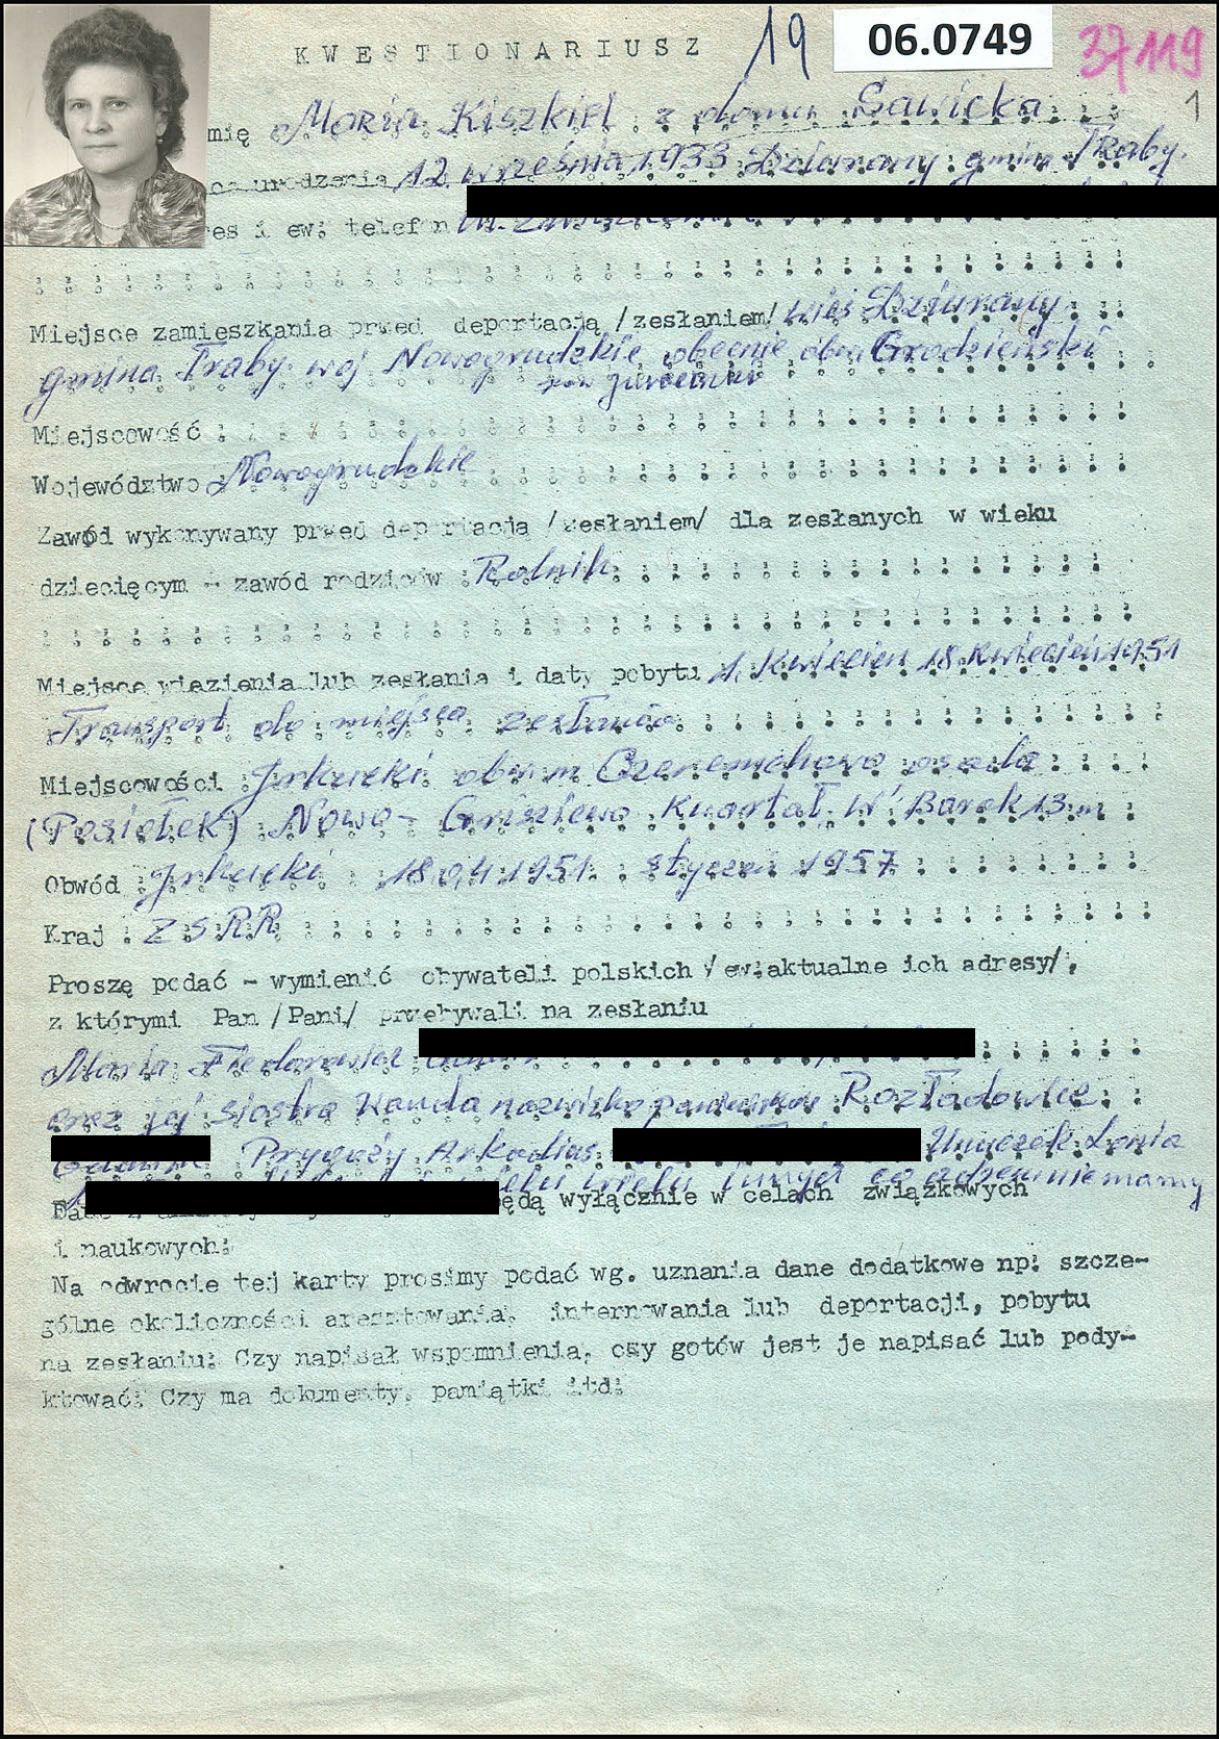 KWESTIONARIUSZ 19 06.0749 37119
1
mię Maria Kiszkiel z domu Sawicka
ca urodzenia 12 września 1933 Dziurany gmina Traby.
res i ew: telefon
Miejsce zamieszkania przed deportacją /zesłaniem/ wieś Dziurany
gmina Traby woj Nowogrudzkie obecnie obw. Grodzieński
Miejscowość
Województwo Nowogrudzkie
Zawód wykonywany przed deportacją /zesłaniem/ dla zesłanych w wieku
dziecięcym - zawód rodziców Rolnik
Miejsce więzienia lub zesłania i daty pobytu 1. Kwiecień 18 Kwiecień 1951
Transport do miejsca zesłania
Miejscowości Jrkucki obw. m Czeremchowo osada
(Posiołek) Nowo-Griszewo Kwartał Barak 13 m
Obwód Jrkucki 18 04 1951 styczeń 1957
Kraj ZSRR
Proszę podać - wymienić obywateli polskich /ew:aktualne ich adresy/,
z którymi Pan /Pani/ przebywali na zesłaniu
Maria Fiedorowicz
oraz jej siostra Wanda nazwisko panieńskie Rozładowice
Prygoży Arkadius Lonia
wielu wielu innych co adresu nie mamy
ędą wyłącznie w celach związkowych
i naukowych:
Na odwrocie tej karty prosimy podać wg. uznania dane dodatkowe np: szcze-
gólne okoliczności aresztowania, internowania lub deportacji, pobytu
na zesłaniu: Czy napisał wspomnienia, czy gotów jest je napisać lub pody-
ktować: Czy ma dokumenty, pamiątki itd: